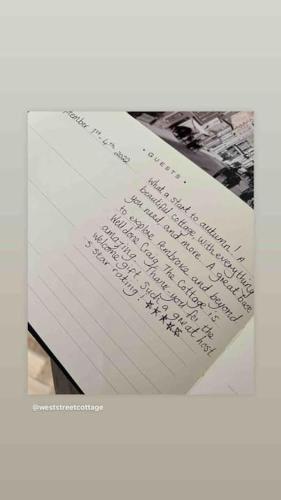 tember 1st - 4th 2022
• GUESTS •
What a start to autumn! A
beautiful cottage with everything
you need - and more. A great base
to explore Pembroke and beyond
Welldone Craig. The Cottage is
amazing. Thank you for the
welcome gift. Such a great host
5 star rating! ★★★★★
@weststreetcottage